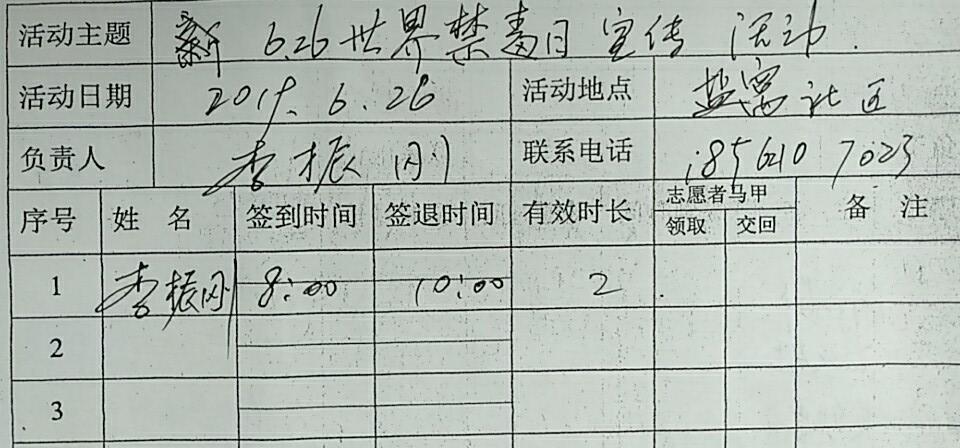 活动主题 新 6.26世界禁毒日宣传 活动.
活动日期 2019.6.26 活动地点 盐窝社区
负责人 李振刚 联系电话
序号 姓名 签到时间 签退时间 有效时长 志愿者马甲 备注
领取 交回
1 李振刚 8:00 10:00 2
2
3